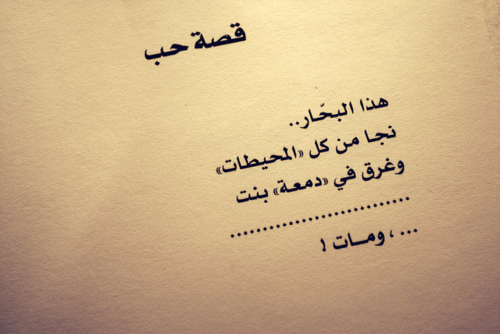 قصة حب
هذا البحّار..
نجا من كل «المحيطات»
وغرق في «دمعة» بنت
............................
... ، ومـات !